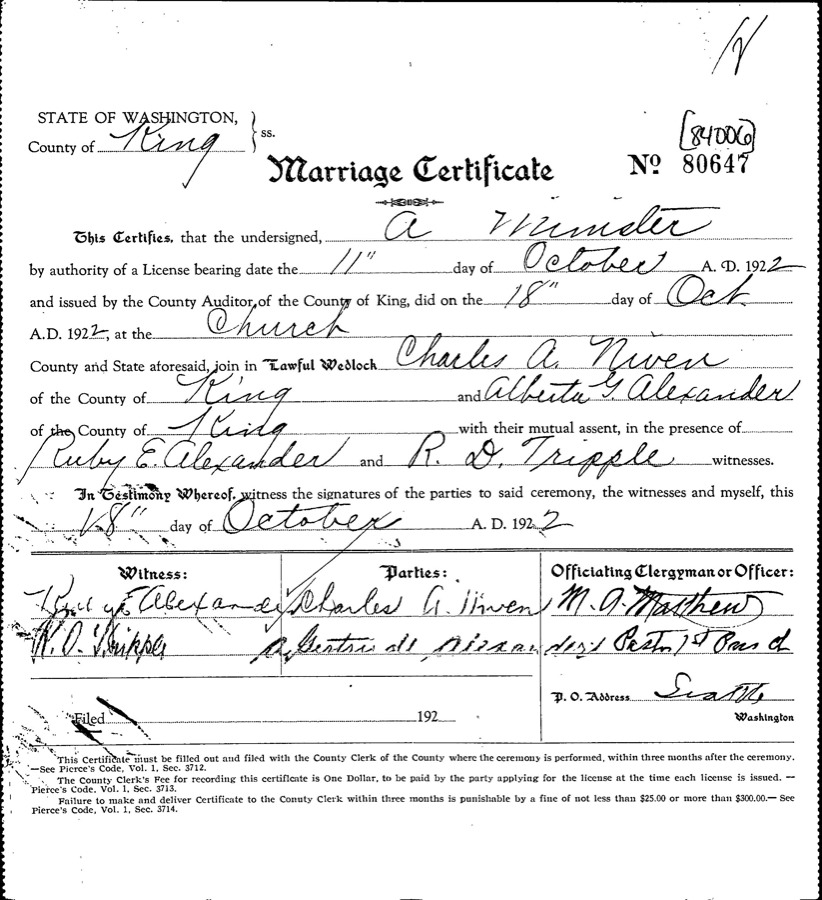 STATE OF WASHINGTON,
County of King } ss.
[84006]
Marriage Certificate
No 80647
This Certifies, that the undersigned, A Minister
by authority of a License bearing date the 11" day of October A. D. 1922
and issued by the County Auditor of the County of King, did on the 18" day of Oct.
A.D. 1922, at the Church
County and State aforesaid, join in Lawful Wedlock Charles A. Niven
of the County of King and Alberta G. Alexander
of the County of King with their mutual assent, in the presence of
Ruby E. Alexander and R. D. Tripple witnesses.
In Testimony Whereof, witness the signatures of the parties to said ceremony, the witnesses and myself, this
18" day of October A. D. 1922
Witness: Parties: Officiating Clergyman or Officer:
Ruby E Alexander Charles A. Niven M. A. Matthews
R. D. Tripple A. Gertrude Alexander Pastor 1st Pres
P. O. Address Seattle
Filed 192 Washington
This Certificate must be filled out and filed with the County Clerk of the County where the ceremony is performed, within three months after the ceremony.
—See Pierce's Code, Vol. 1, Sec. 3712.
The County Clerk's Fee for recording this certificate is One Dollar, to be paid by the party applying for the license at the time each license is issued. —
Pierce's Code, Vol. 1, Sec. 3713.
Failure to make and deliver Certificate to the Conuty Clerk within three months is punishable by a fine of not less than $25.00 or more than $300.00.— See
Pierce's Code, Vol. 1, Sec. 3714.